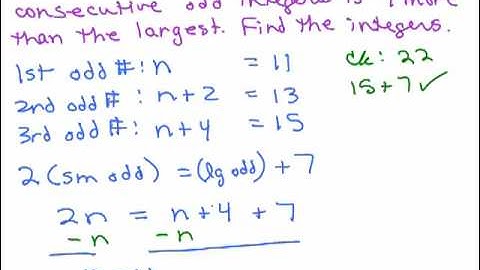 consecutive odd integers is 7 more
than the largest. Find the integers.
1st odd #: n = 11
2nd odd #: n+2 = 13
3rd odd #: n+4 = 15
ck: 22
15+7 ✓
2(sm odd) = (lg odd) + 7
2n = n+4 + 7
-n -n